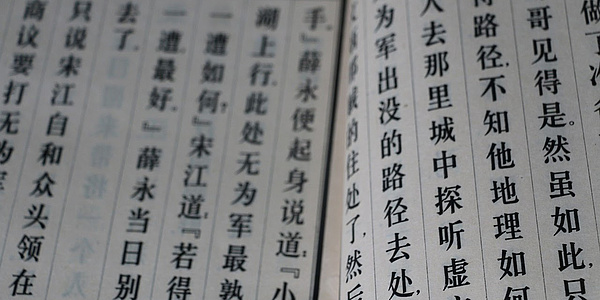 做了
哥见得是。然虽如此,只
得路径,不知他地理如何
人去那里城中探听虚
为军出没的路径去处,
的住处了,然后
手。』薛永便起身说道:『小
湖上行,此处无为军最熟
一遭如何?』宋江道:『若得
一遭最好。』薛永当日别
去了。
只说宋江自和众头领在
商议要打无为军